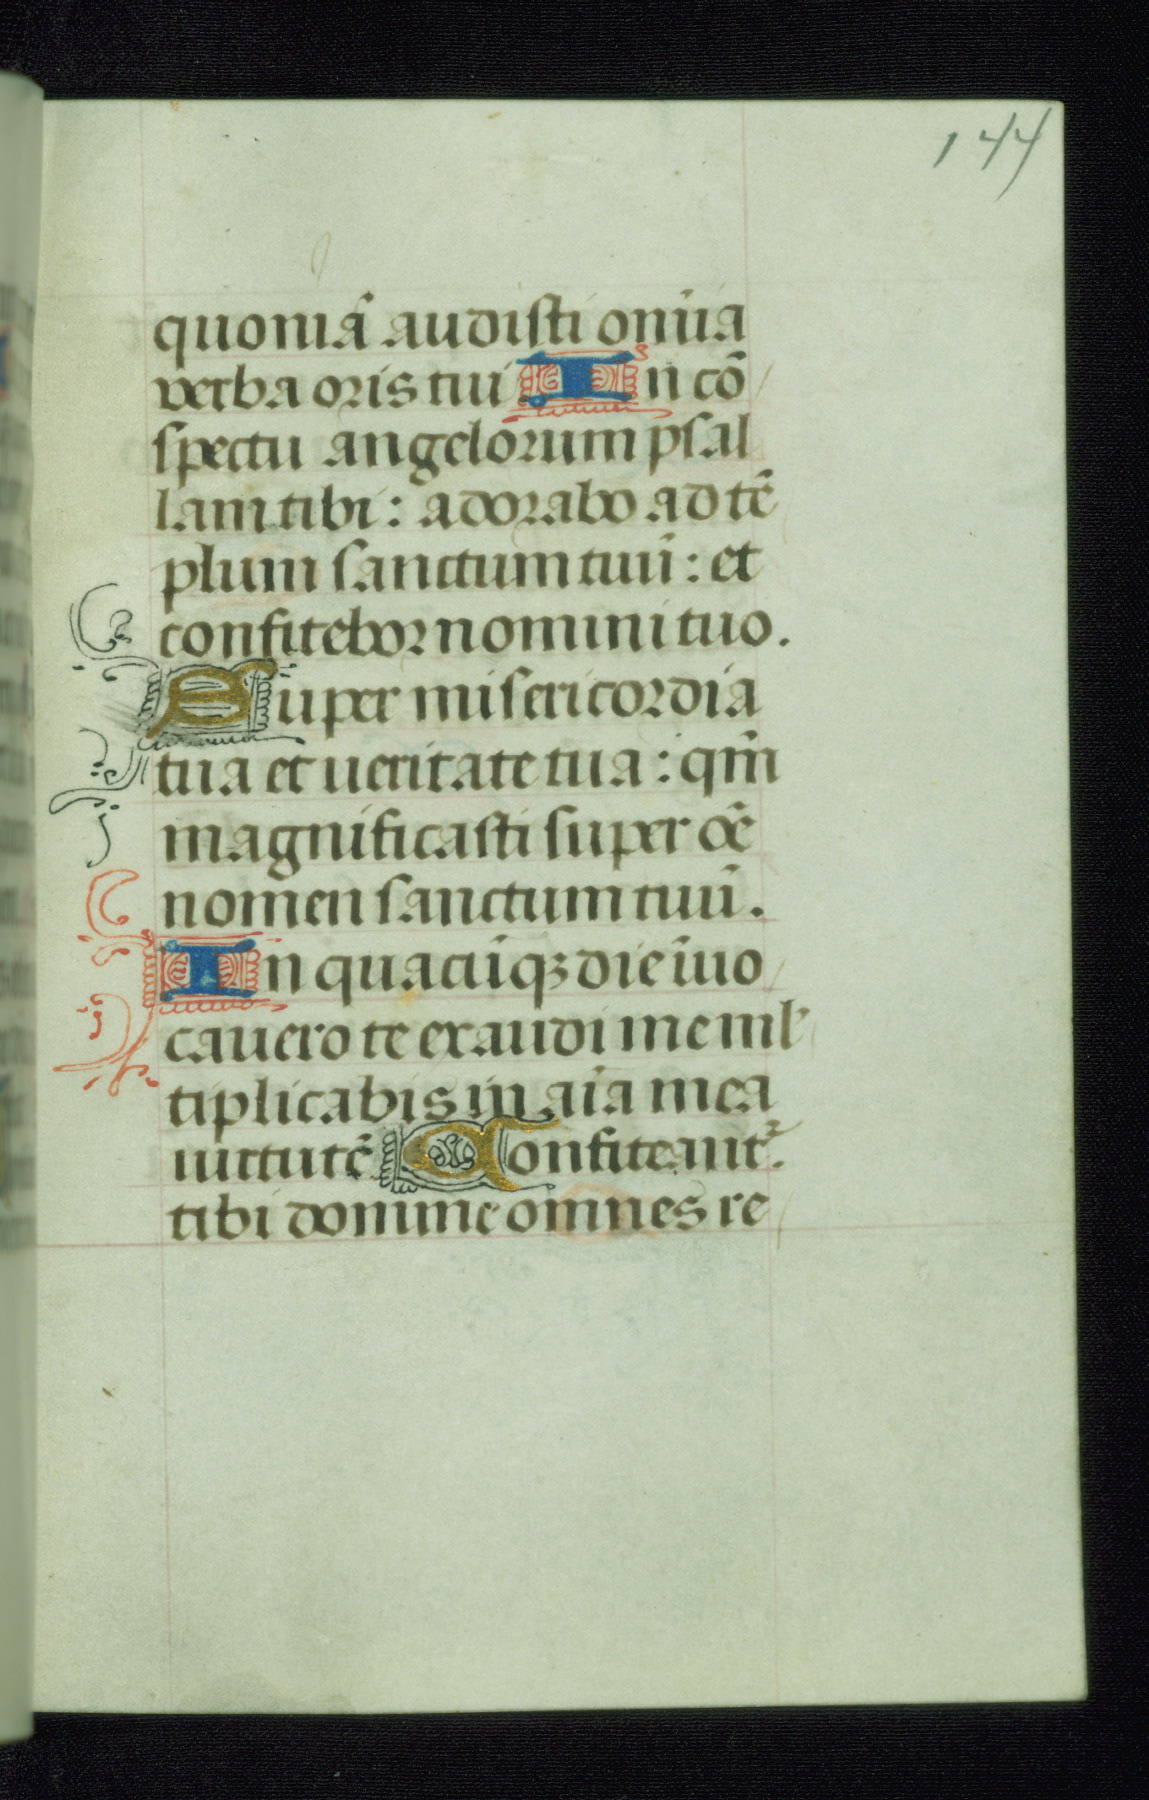 144
quoniā audisti om̄ia
verba oris tui In cō
spectu angelorum psal
lam tibi : adorabo ad tē
plum sanctum tuū : et
confitebor nomini tuo.
Super misericordia
tua et ueritate tua : qm̄
magnificasti super oē
nomen sanctum tuū.
In quacūqꝫ die īuo
cauero te exaudi me ml̓
tiplicabis in aīa mea
uirtutē Confiteant᷑.
tibi domine omnes re